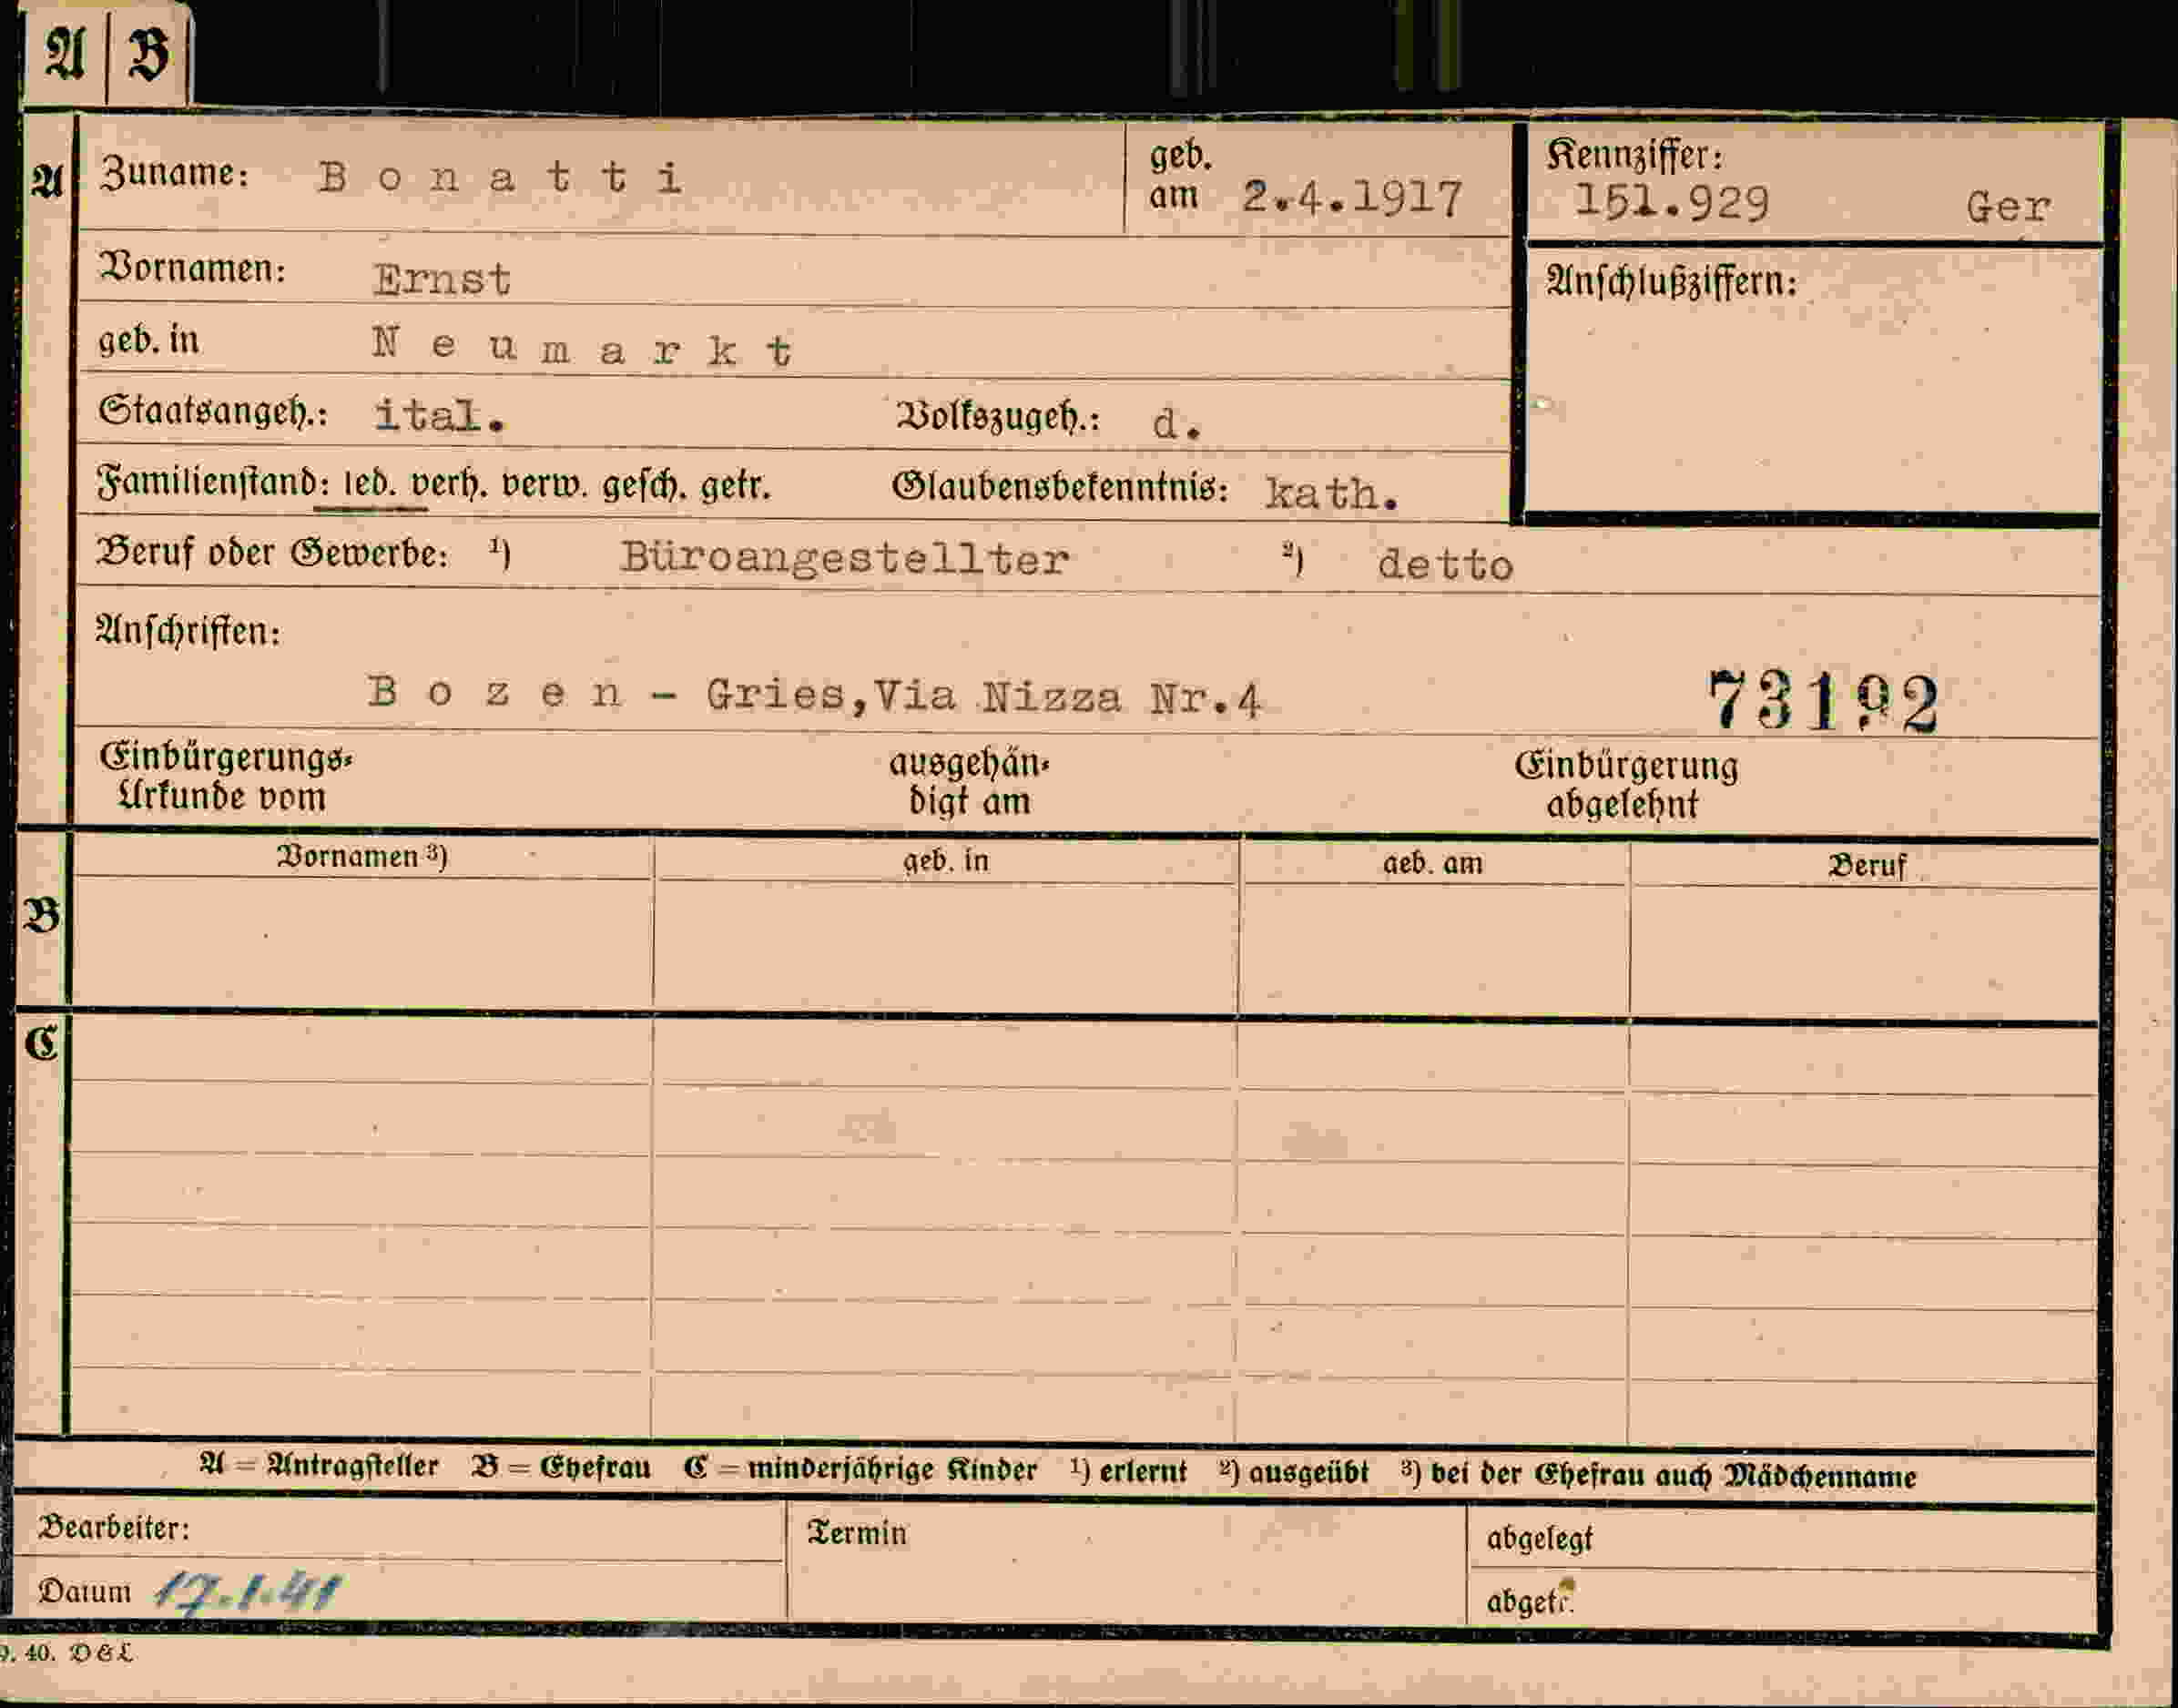 A B
A Zuname: Bonatti geb. am 2.4.1917 Kennziffer: 151.929 Ger
Vornamen: Ernst Anschlußziffern:
geb. in Neumarkt
Staatsangeh.: ital. Volkszugeh.: d.
Familienstand: led. verh. verw. gesch. getr. Glaubensbekenntnis: kath.
Beruf oder Gewerbe: 1) Büroangestellter 2) detto
Anschriften:
Bozen - Gries,Via Nizza Nr.4 73192
Einbürgerungs- ausgehän- Einbürgerung
Urkunde vom digt am abgelehnt
Vornamen 3) geb. in geb. am Beruf
B
C
A = Antragsteller B = Ehefrau C = minderjährige Kinder 1) erlernt 2) ausgeübt 3) bei der Ehefrau auch Mädchenname
Bearbeiter: Termin abgelegt
Datum 17.1.41 abgetr.
9. 40. D&L